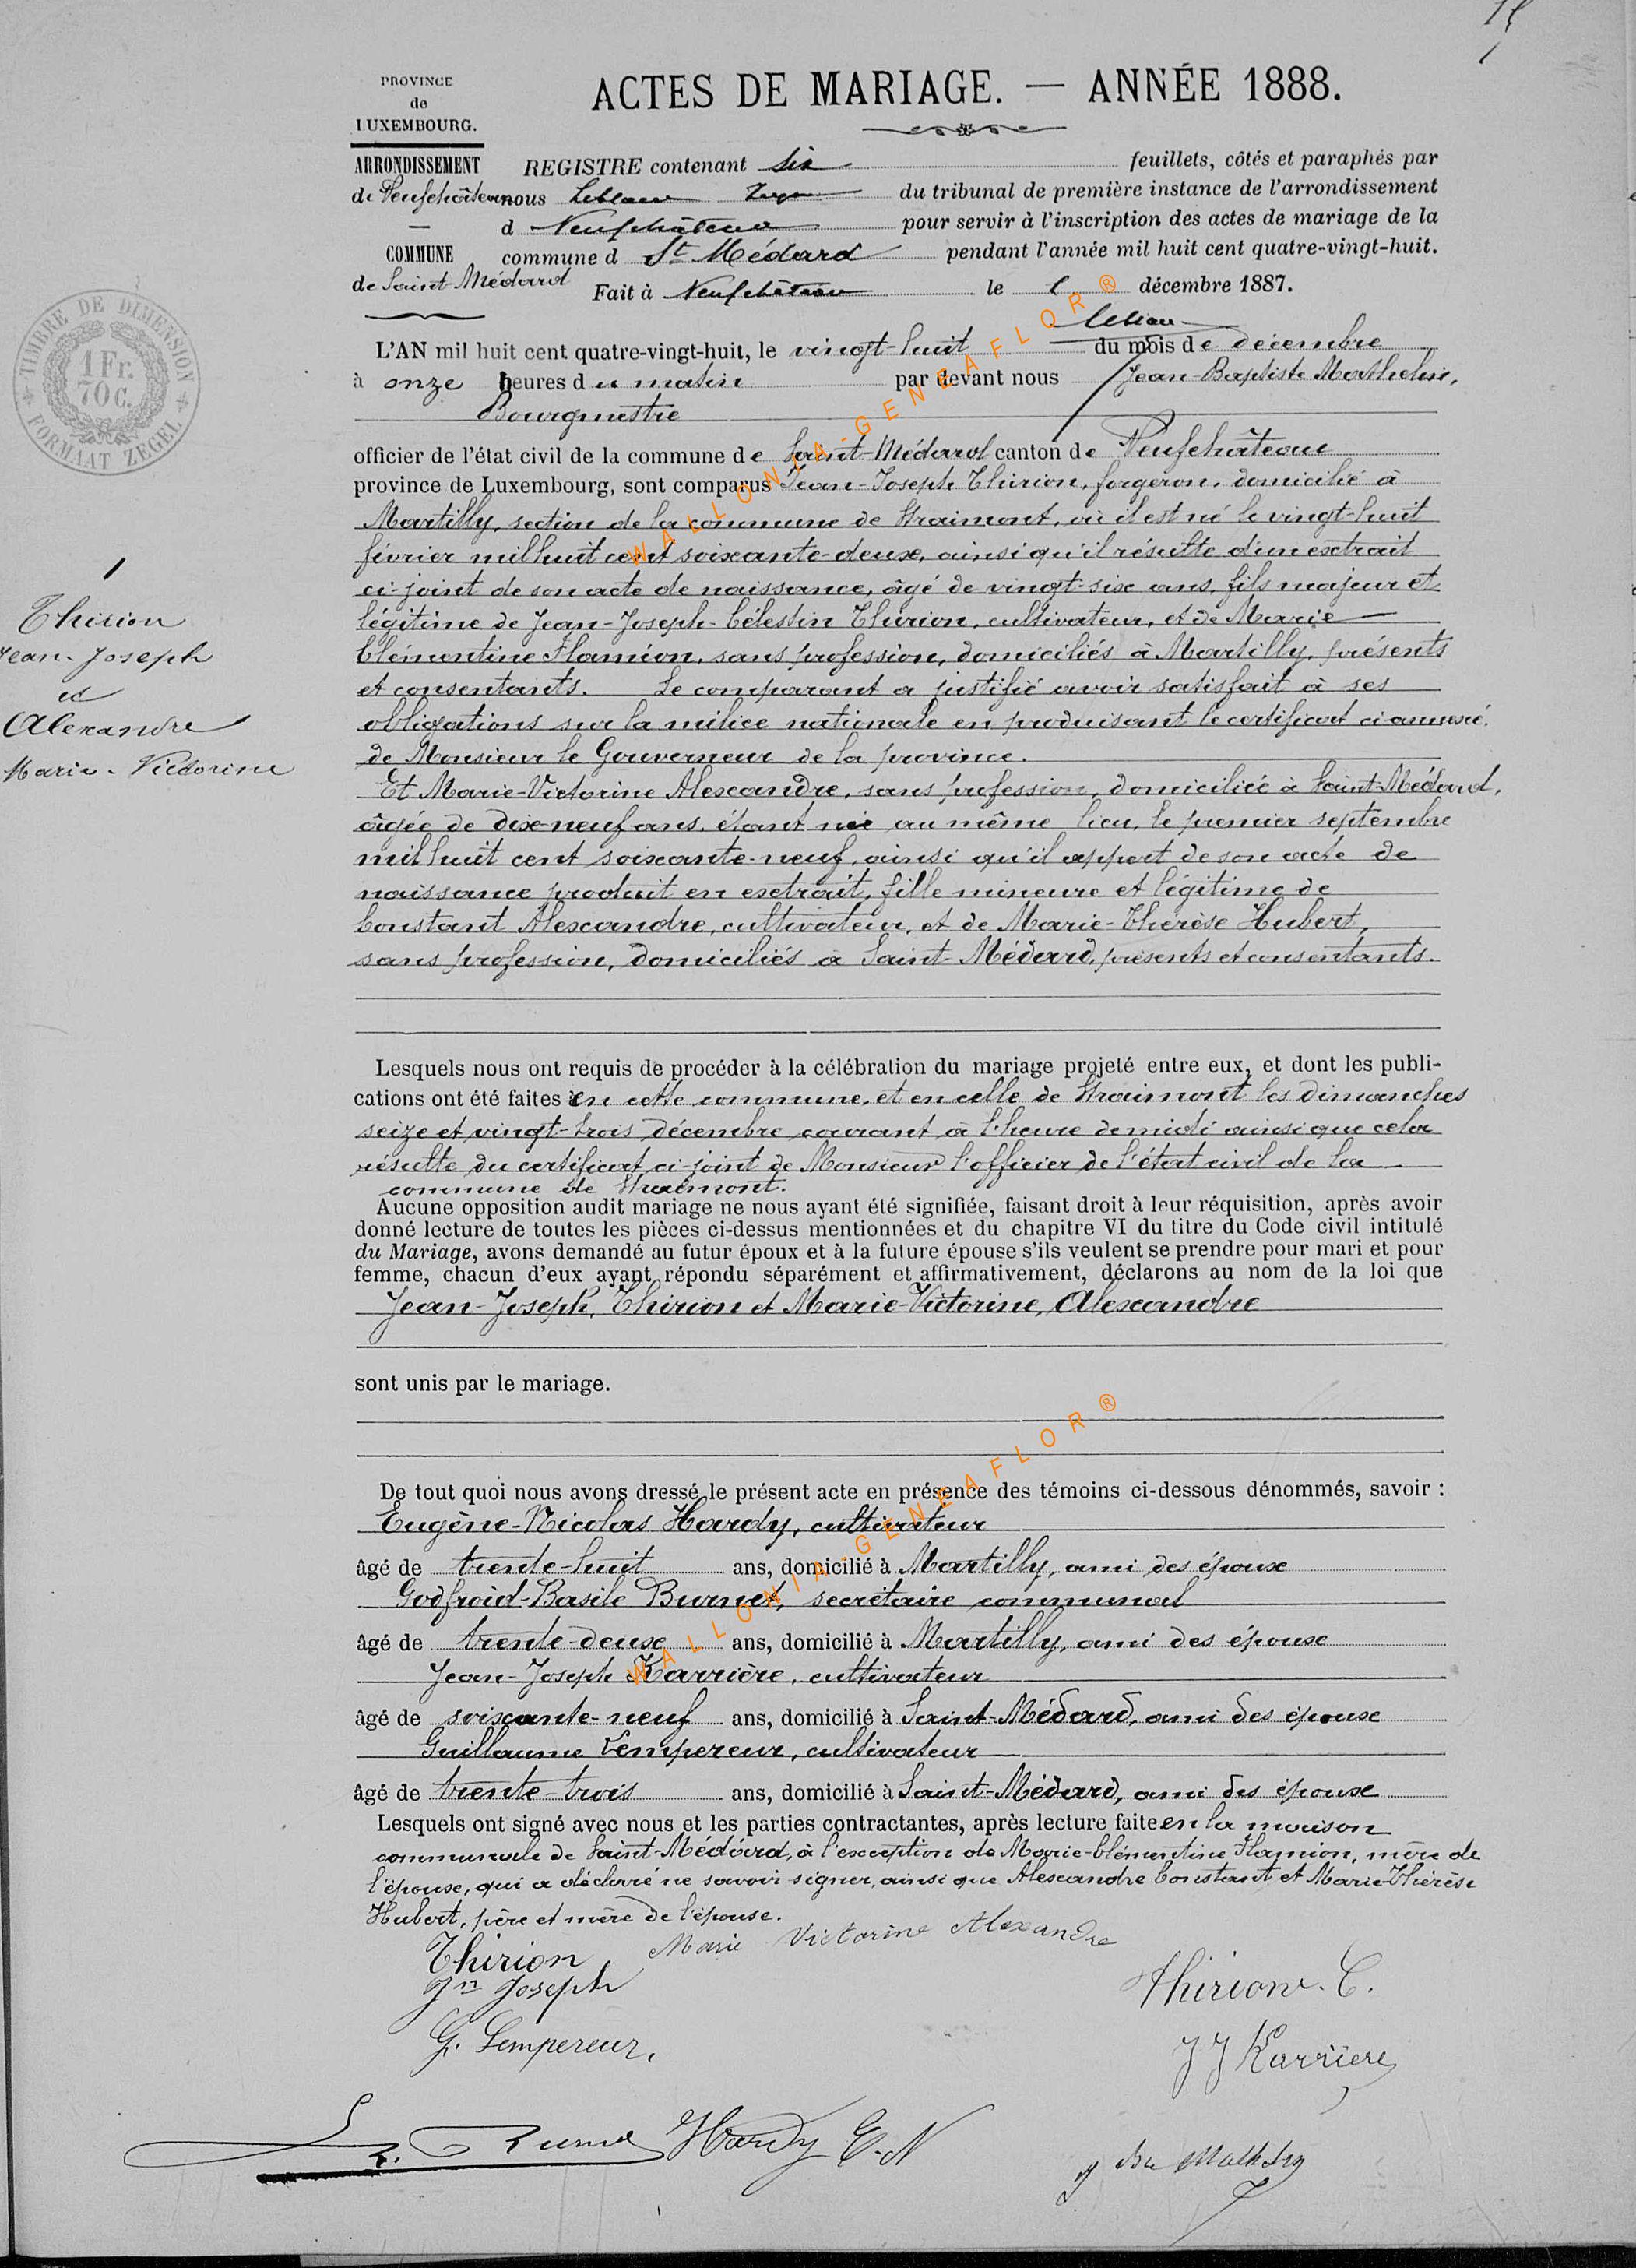 PROVINCE
de
LUXEMBOURG.
ARRONDISSEMENT
de Neufchâteau
COMMUNE
de Saint-Médard
ACTES DE MARIAGE. — ANNÉE 1888.
REGISTRE contenant six feuillets, côtés et paraphés par
nous Leblanc du tribunal de première instance de l'arrondissement
d Neufchâteau pour servir à l'inscription des actes de mariage de la
commune d St Médard pendant l'année mil huit cent quatre-vingt-huit.
Fait à Neufchâteau le décembre 1887.
TIMBRE DE DIMENSION
1 Fr.
70 C.
FORMAAT ZEGEL
L'AN mil huit cent quatre-vingt-huit, le vingt-huit du mois de décembre
à onze heures du matin par devant nous Jean-Baptiste Mathelin,
Bourgmestre
officier de l'état civil de la commune de Saint-Médard canton de Neufchâteau
province de Luxembourg, sont comparus Jean-Joseph Thirion, forgeron, domicilié à
Martilly, section de la commune de Straimont, où il est né le vingt-huit
février mil huit cent soixante-deux, ainsi qu'il résulte d'un extrait
ci-joint de son acte de naissance, âgé de vingt-six ans, fils majeur et
légitime de Jean-Joseph-Célestin Thirion, cultivateur, et de Marie
Clémentine Hamion, sans profession, domiciliés à Martilly, présents
et consentants. Le comparant a justifié avoir satisfait à ses
obligations sur la milice nationale en produisant le certificat ci annexé
de Monsieur le Gouverneur de la province.
1
Thirion
Jean-Joseph
et
Alexandre
Marie-Victorine
Et Marie-Victorine Alexandre, sans profession, domiciliée à Saint-Médard,
âgée de dix-neuf ans, étant née au même lieu, le premier septembre
mil huit cent soixante-neuf, ainsi qu'il appert de son acte de
naissance produit en extrait, fille mineure et légitime de
Constant Alexandre, cultivateur, et de Marie-Thérèse Hubert,
sans profession, domiciliés à Saint-Médard, présents et consentants.
Lesquels nous ont requis de procéder à la célébration du mariage projeté entre eux, et dont les publi-
cations ont été faites en cette commune, et en celle de Straimont les dimanches
seize et vingt-trois décembre courant à l'heure de midi ainsi que cela
résulte du certificat ci-joint de Monsieur l'officier de l'état civil de la
commune de Straimont.
Aucune opposition audit mariage ne nous ayant été signifiée, faisant droit à leur réquisition, après avoir
donné lecture de toutes les pièces ci-dessus mentionnées et du chapitre VI du titre du Code civil intitulé
du Mariage, avons demandé au futur époux et à la future épouse s'ils veulent se prendre pour mari et pour
femme, chacun d'eux ayant répondu séparément et affirmativement, déclarons au nom de la loi que
Jean-Joseph, Thirion et Marie-Victorine, Alexandre
sont unis par le mariage.
De tout quoi nous avons dressé le présent acte en présence des témoins ci-dessous dénommés, savoir :
Eugène-Nicolas Hardy, cultivateur
âgé de trente-huit ans, domicilié à Martilly, ami des époux
Godfroid-Basile Burnet, secrétaire communal
âgé de trente-deux ans, domicilié à Martilly, ami des époux
Jean-Joseph Karrière, cultivateur
âgé de soixante-neuf ans, domicilié à Saint-Médard, ami des époux
Guillaume Lempereur, cultivateur
âgé de trente-trois ans, domicilié à Saint-Médard, ami des époux
Lesquels ont signé avec nous et les parties contractantes, après lecture faite en la maison
communale de Saint-Médard, à l'exception de Marie-Clémentine Hamion, mère de
l'épouse, qui a déclaré ne savoir signer, ainsi que Alexandre Constant et Marie-Thérèse
Hubert, père et mère de l'épouse.
Thirion Marie Victorine Alexandre
Jn Joseph Thirion. C.
G. Lempereur, J J Karriere
Hardy E-N
WALLONIA-GENEAFLOR ®
WALLONIA-GENEAFLOR ®